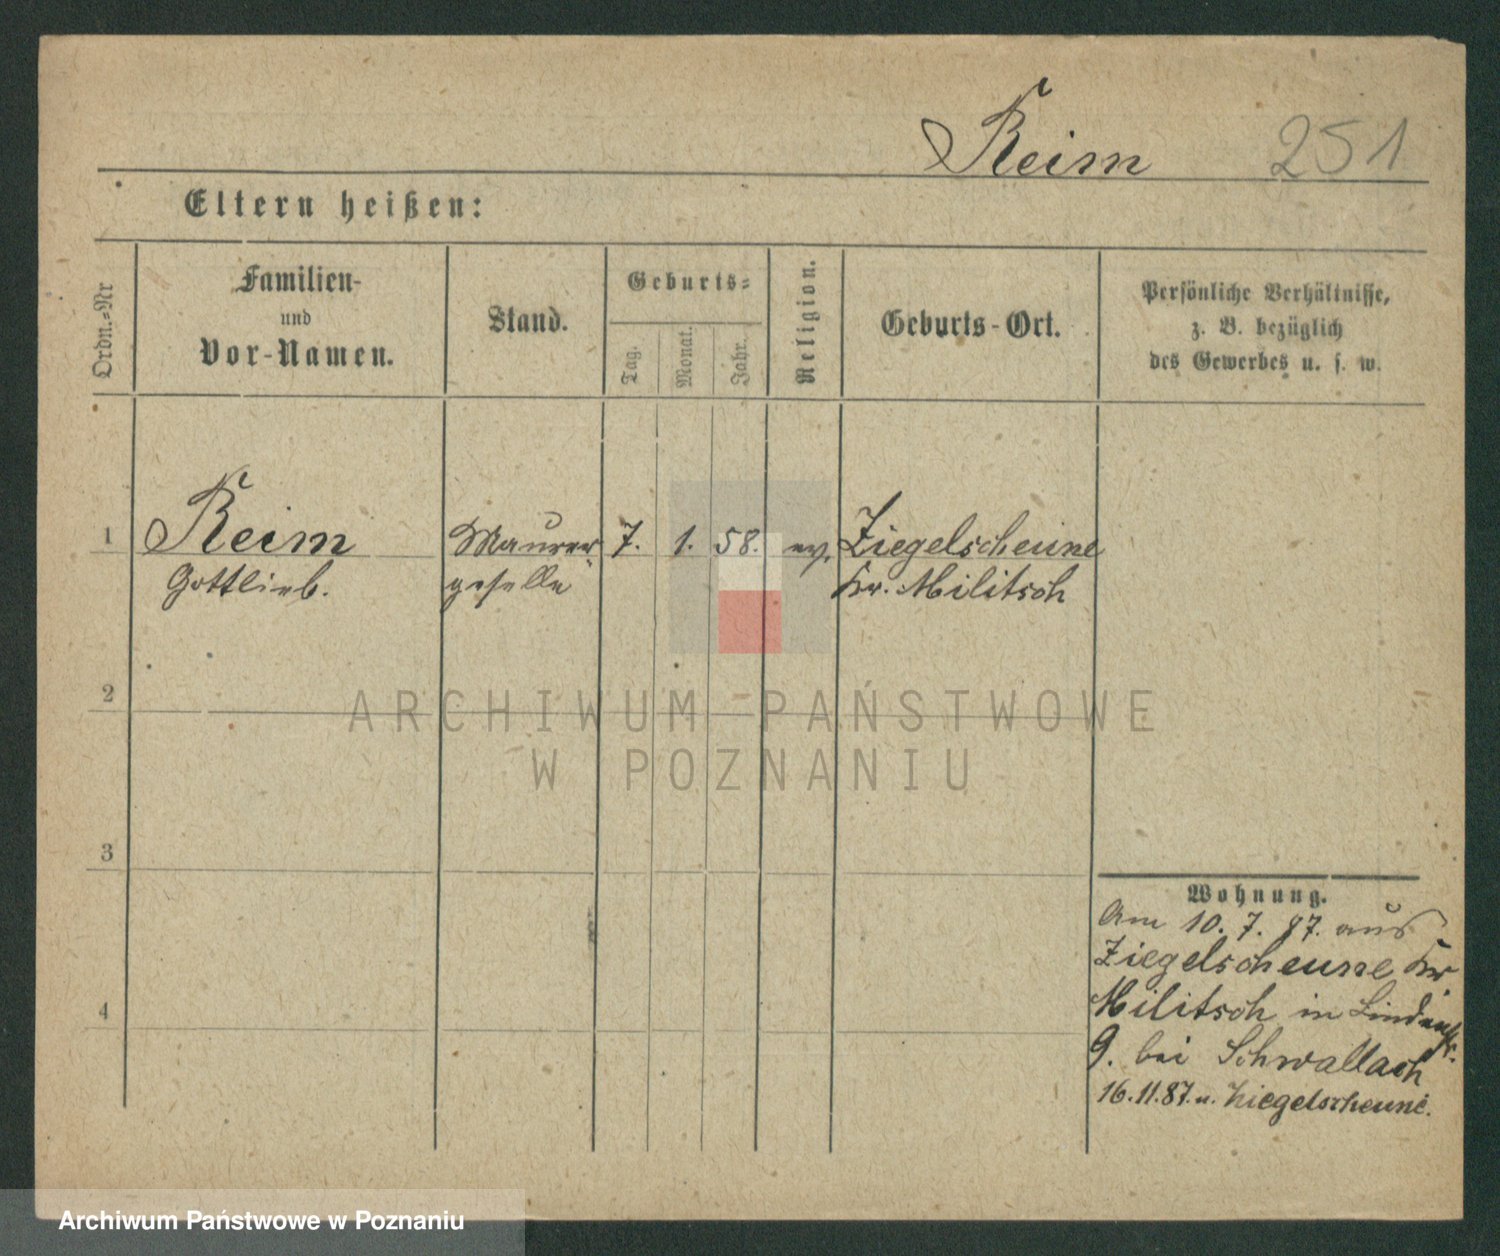 Reim 251
Eltern heißen:
Ordn.-Nr
Familien-
und
Vor-Namen.
Stand.
Geburts-
Tag.
Monat.
Jahr.
Religion.
Geburts-Ort.
Persönliche Verhältnisse,
z. B. bezüglich
des Gewerbes u. s. w.
1 Reim Maurer 7. 1. 58. ev. Ziegelscheune
Gottlieb. geselle Kr. Militsch
2
ARCHIWUM PAŃSTWOWE
W POZNANIU
3
Wohnung.
Am 10. 7. 87. aus
Ziegelscheune Kr
Militsch in Lindenstr.
4
9. bei Schwallach
16.11.87. n. Ziegelscheune.
Archiwum Państwowe w Poznaniu